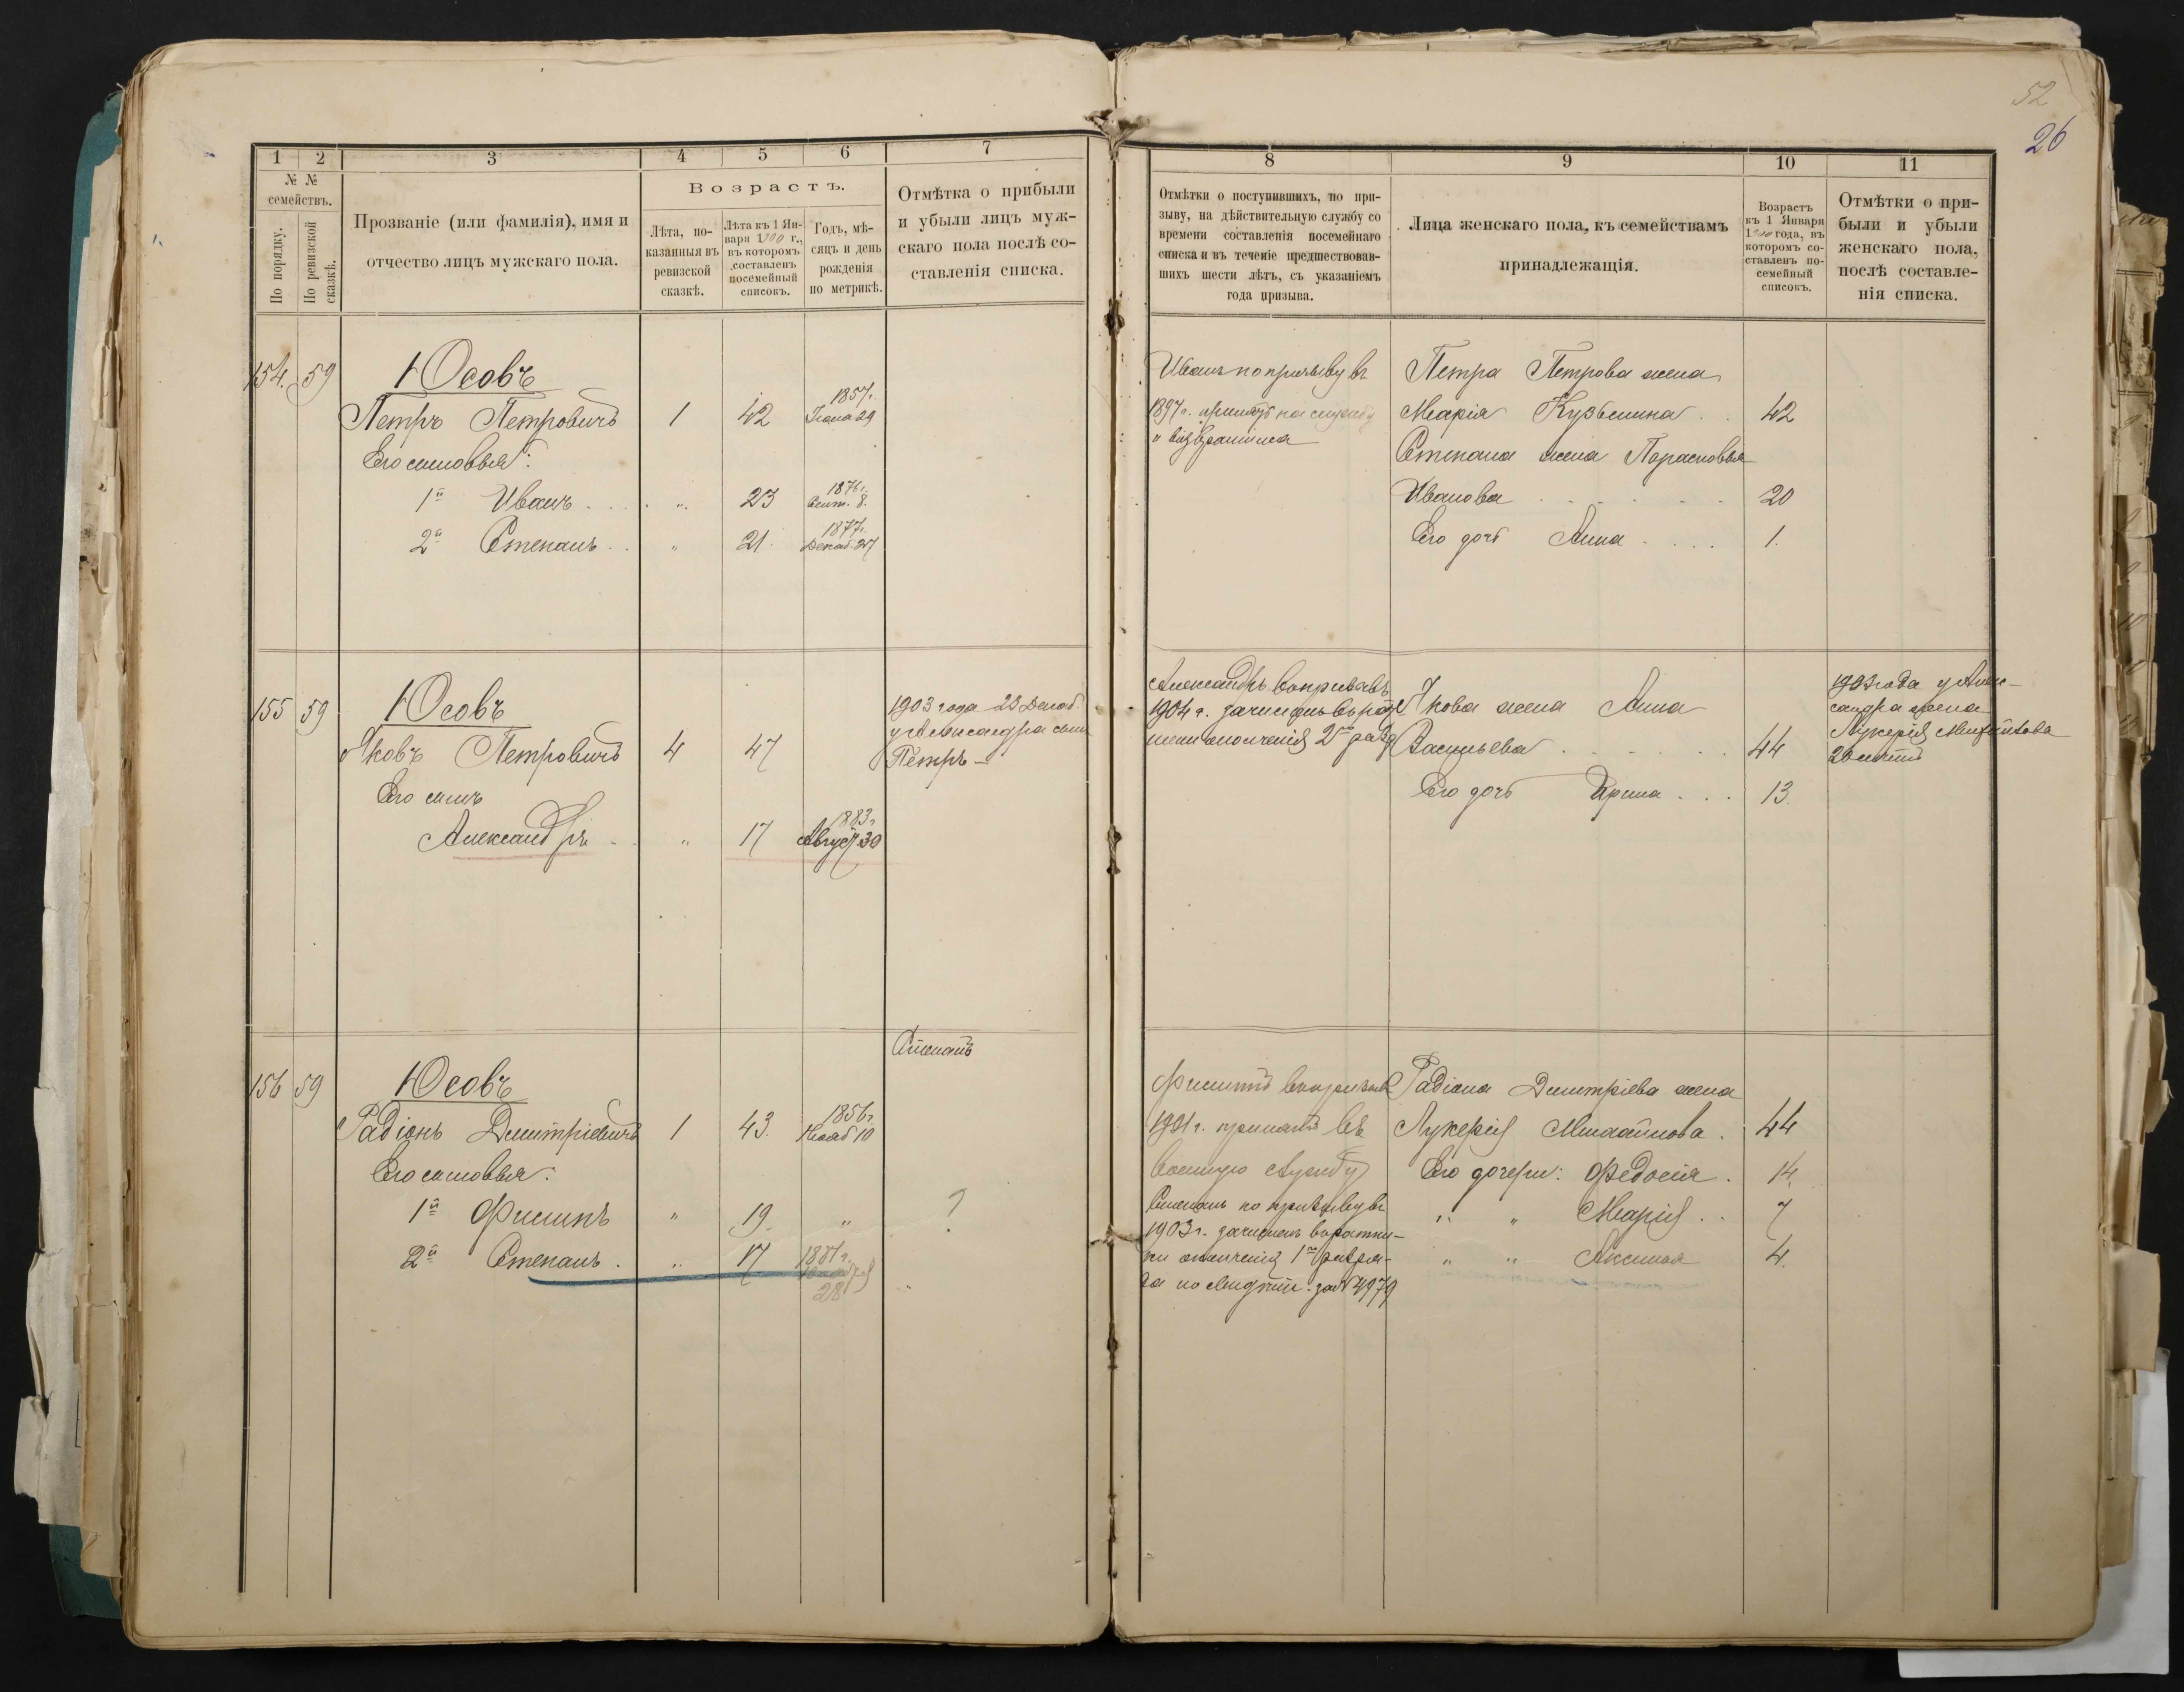 52
26
1 2 3 4 5 6 7
№ № семействъ.
По порядку.
По ревизской сказкѣ.
Прозваніе (или фамилія), имя и
отчество лицъ мужскаго пола.
Возрастъ.
Лѣта, по-
казанныя въ
ревизской
сказкѣ.
Лѣта къ 1 Ян-
варя 1900 г.,
въ которомъ
составленъ
посемейный
списокъ.
Годъ, мѣ-
сяцъ и день
рожденія
по метрикѣ.
Отмѣтка о прибыли
и убыли лицъ муж-
скаго пола послѣ со-
ставленія списка.
154. 59 Юсовъ
Петръ Петровичъ 1 42 1857г. Іюня 29
Его сыновья:
1й Иванъ . . . „ 23 1876г. Сент. 8.
2й Степанъ . . „ 21. 1877г. Декаб. 27
155 59 Юсовъ
Яковъ Петровичъ 4 47
Его сынъ
Александръ „ 17 1883г. Август 30
1903 года 23 Декаб.
у Александра сынъ
Петръ —
Степанъ
156 59 Юсовъ
Радіонъ Дмитріевичъ 1 43. 1856г. Нояб 10
Его сыновья:
1й Филипъ „ 19. „ ?
2й Степанъ . „ 17 1881г.
28
8 9 10 11
Отмѣтки о поступившихъ, по при-
зыву, на дѣйствительную службу со
времени составленія посемейнаго
списка и въ теченіе предшествовав-
шихъ шести лѣтъ, съ указаніемъ
года призыва.
Лица женскаго пола, къ семействамъ
принадлежащія.
Возрастъ
къ 1 Января
1900 года, въ
которомъ со-
ставленъ по-
семейный
списокъ.
Отмѣтки о при-
были и убыли
женскаго пола,
послѣ составле-
нія списка.
Иванъ по призыву въ
1897г. принятъ на службу
и возвратился
Петра Петрова жена
Марія Кузьмина . . 42
Степана жена Парасковья
Иванова . . . . . . 20
Его дочь Анна . . . . 1.
Александръ въ призывъ
1904 г. зачисленъ въ рат
ники ополченія 2го разр
Якова жена Анна
Васильева . . . . . . 44
Его дочь Ирина . . . 13.
1903 года у Алек-
сандра жена
Лукерія
20 лѣтъ
Филиппъ въ призывъ
1901 г. принятъ въ
военную службу
Степанъ по призыву въ
1903г. зачисленъ въ ратни-
ки ополченія 1го разря-
да по свидѣт. за № 4979
Радіона Дмитріева жена
Лукерія Михайлова . 44
Его дочери: Федосія . 14.
„ „ Марія . . 7
„ „ Аксинья 4.